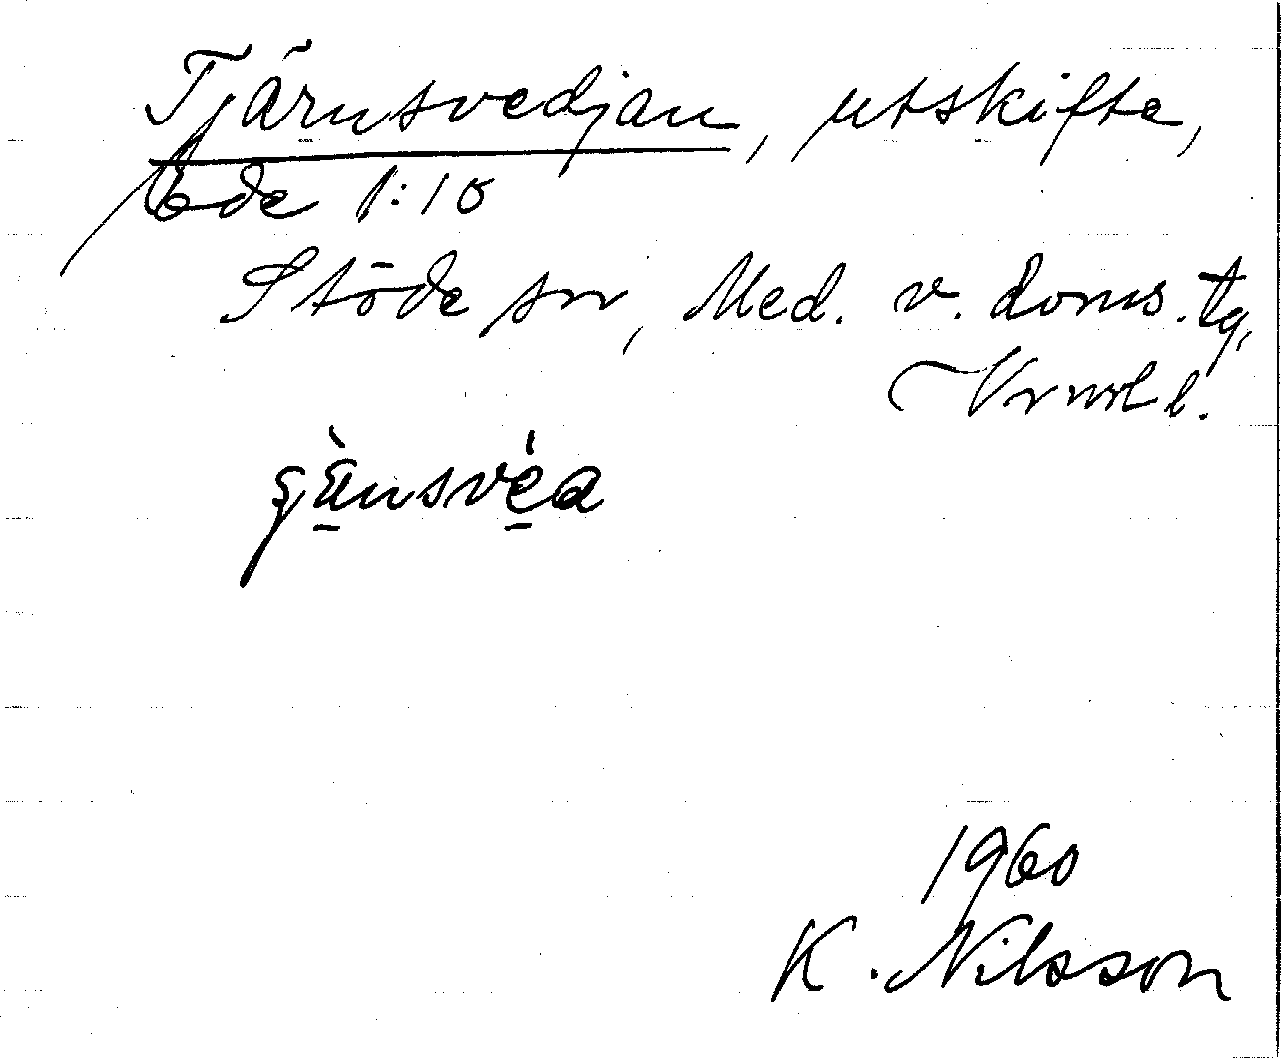 Tjärnsvedjan, utskifte,
Ede 1:10
Stöde sn, Med. v. doms.tg,
Vrnrl l.
gä̀nsvéa
1960
K. Nilsson